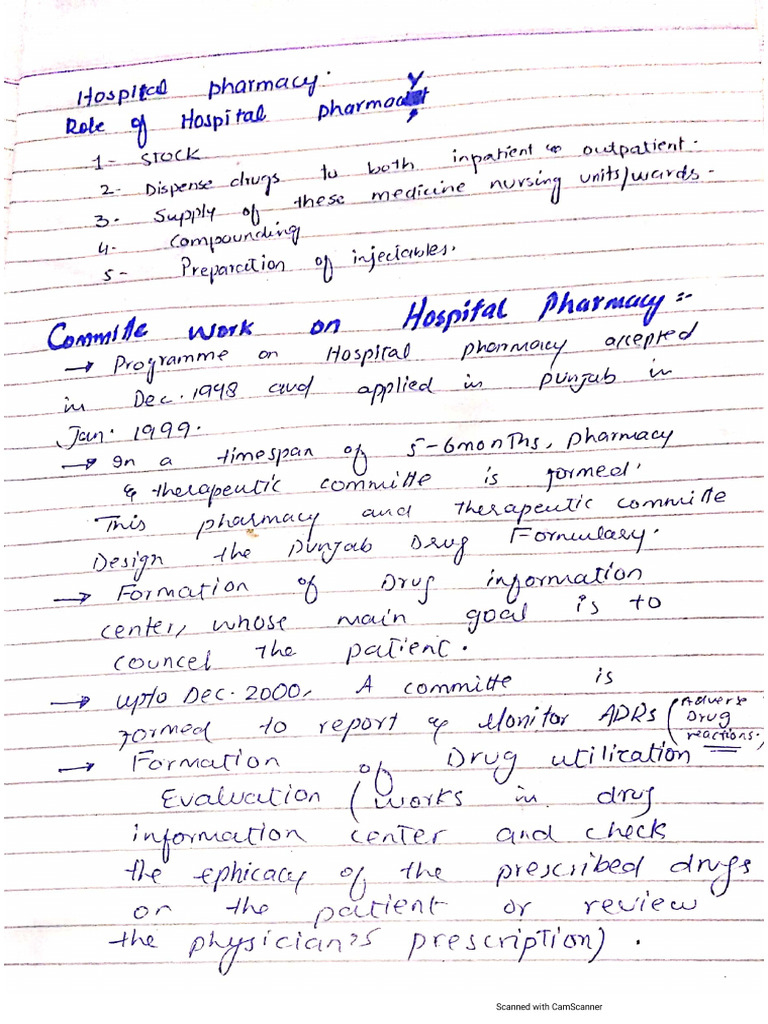 Hospital pharmacy.
Role of Hospital pharmacy
1- STOCK
2- Dispense drugs to both inpatient & outpatient.
3- Supply of these medicine nursing units/wards.
4- Compounding
5- Preparation of injectables.
Committe Work on Hospital Pharmacy:-
→ Programme on Hospital pharmacy accepted
in Dec. 1998 and applied in punjab in
Jan. 1999.
→ In a timespan of 5-6 months, pharmacy
& therapeutic committe is formed.
This pharmacy and therapeutic committe
Design the punjab Drug Formulary.
→ Formation of Drug information
center, whose main goal is to
councel the patient.
→ upto Dec. 2000, A committe is
formed to report & Monitor ADRs (Adverse
Drug
reactions.)
→ Formation of Drug utilization
Evaluation (works in drug
information center and check
the ephicacy of the prescribed drugs
on the patient or review
the physician's prescription).
Scanned with CamScanner